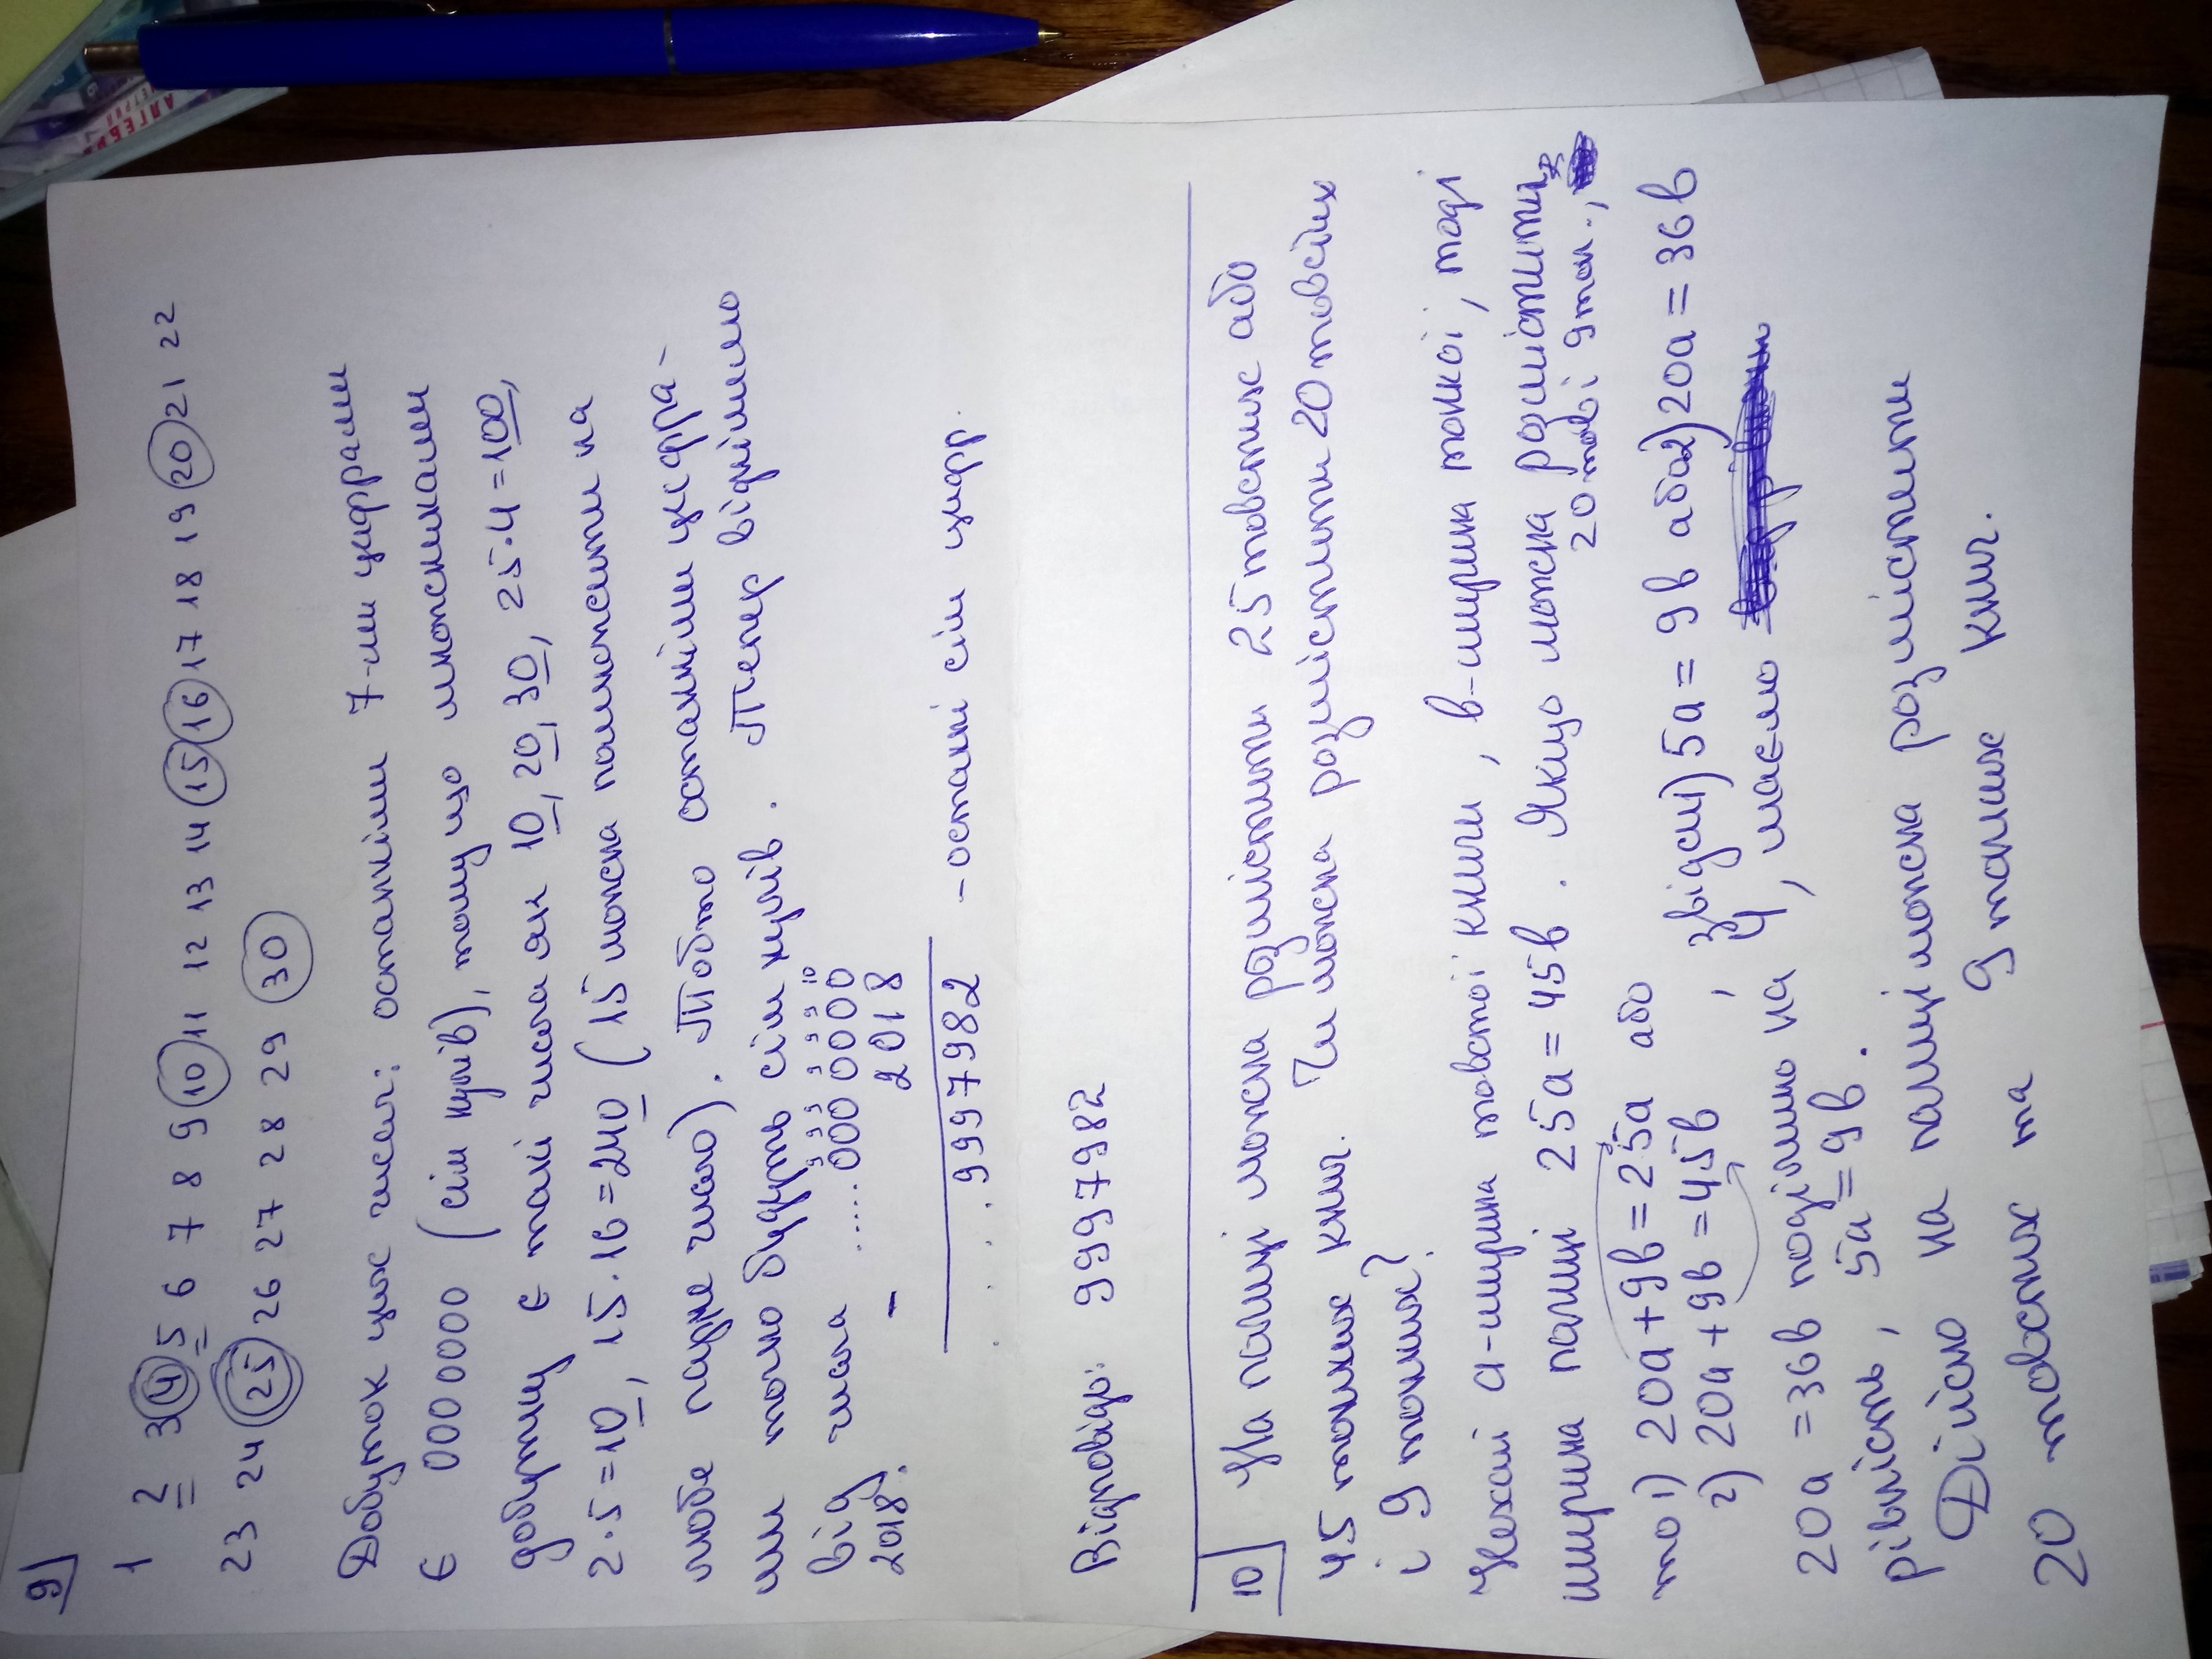 9)
1 2 3 4 5 6 7 8 9 10 11 12 13 14 15 16 17 18 19 20 21 22
23 24 25 26 27 28 29 30
Добуток цих чисел: останніми 7-ми цифрами
є 0000000 (сім нулів), тому що множниками
добутку є такі числа як 10, 20, 30, 25·4=100,
2·5=10, 15·16=240 (15 можна помножити на
любе парне число). Тобто останніми цифра-
ми точно будуть сім нулів. Тепер віднімемо
від числа ..... 0000000
2018. - 2018
. . . 9997982 - останні сім цифр.
Відповідь: 9997982
10) На полиці можна розмістити 25 товстих або
45 тонких книг. Чи можна розмістити 20 товстих
і 9 тонких?
Нехай а-ширина товстої книги, в-ширина тонкої, тоді
ширина полиці 25а=45в. Якщо можна розмістити
20 товс і 9 тон.,
то 1) 20а+9в=25а або
2) 20а+9в=45в, звідси 1) 5а=9в або 2) 20а=36в
20а=36в поділимо на 4, маємо
рівність, 5а=9в.
Дійсно на полиці можна розмістити
20 товстих та 9 тонких книг.
АЛГЕБРА